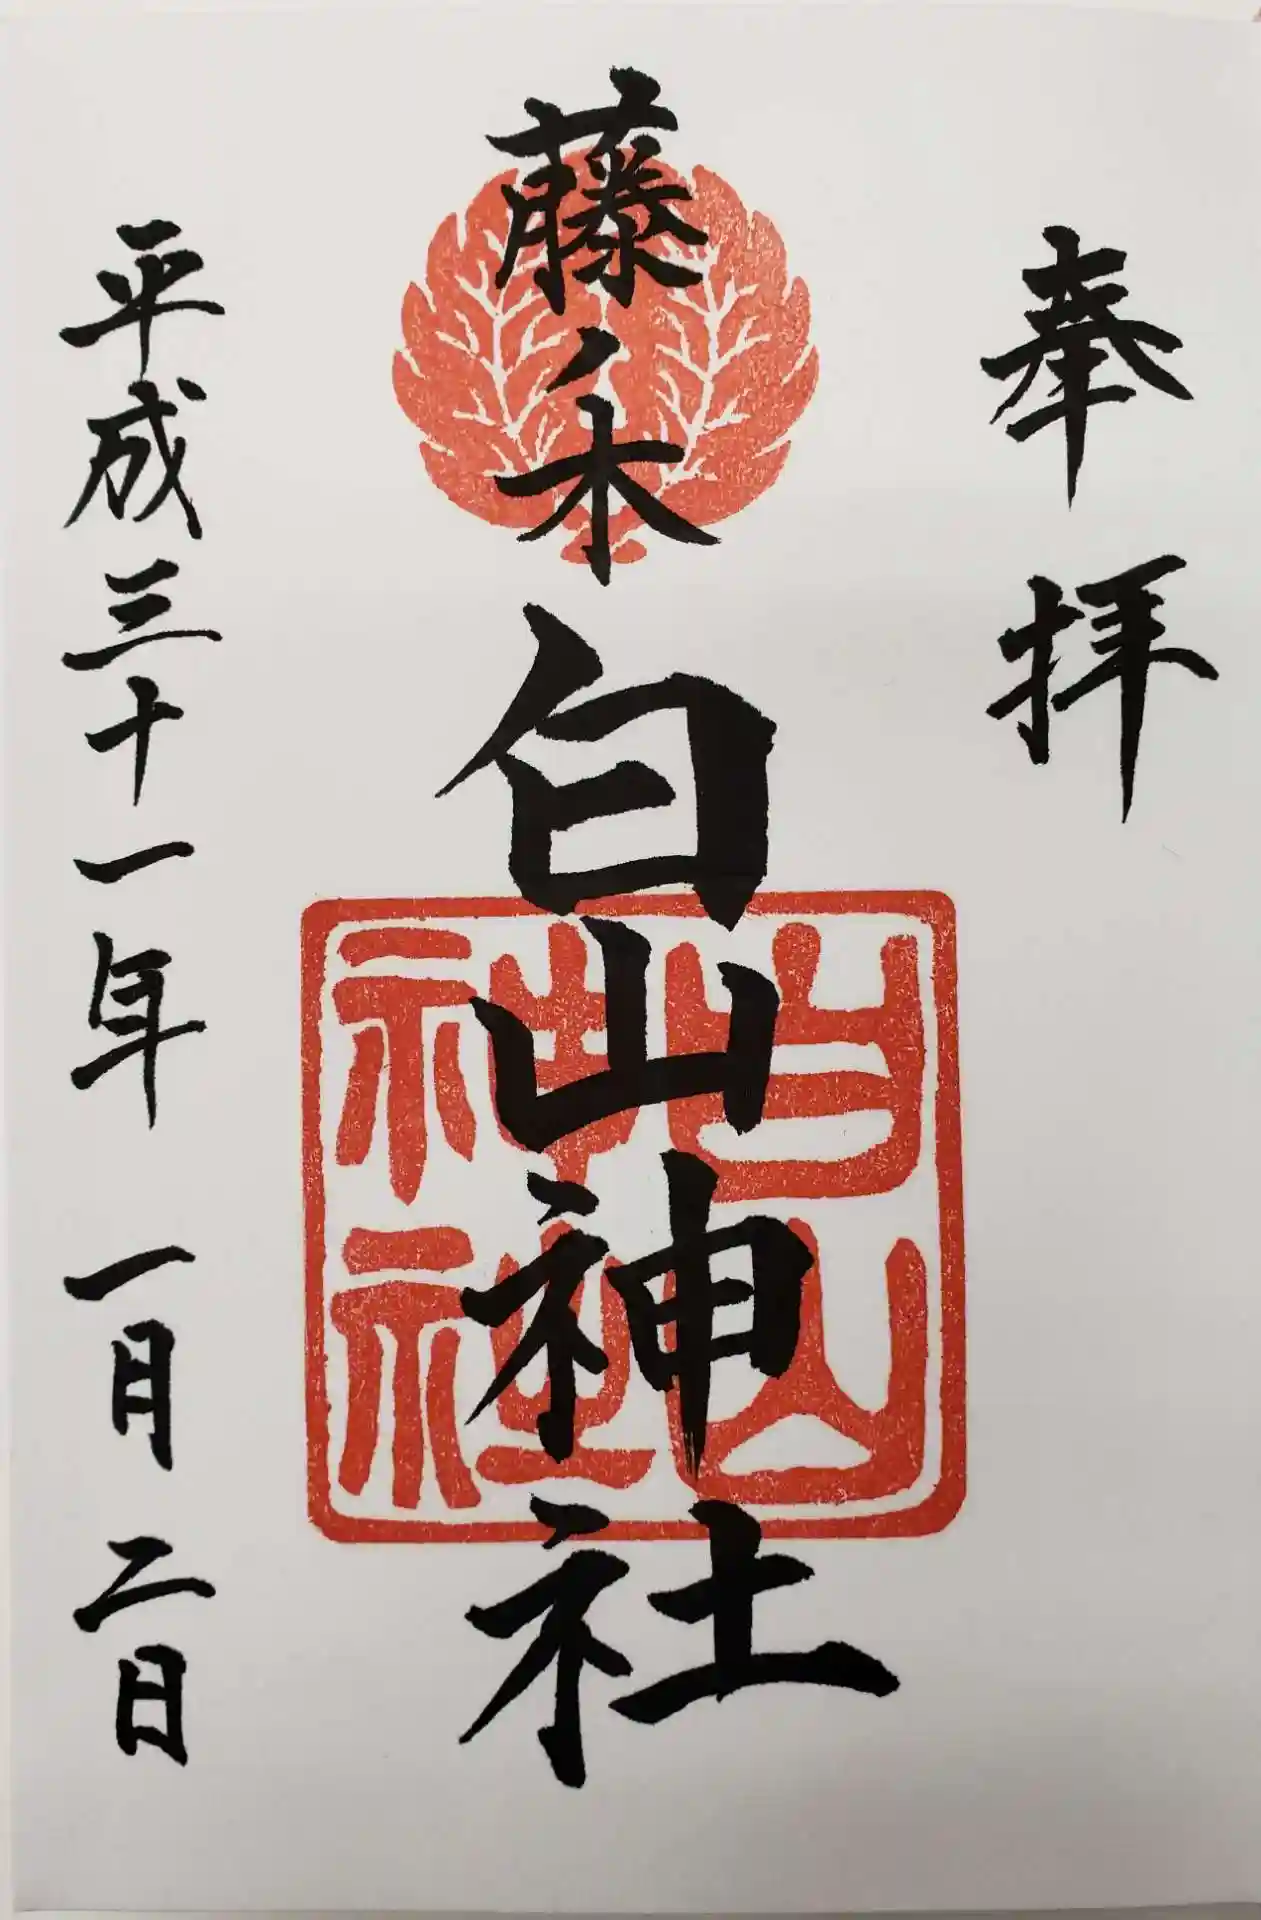 奉拝
藤ノ木
白山神社
白山
神社
平成三十一年 一月 二日